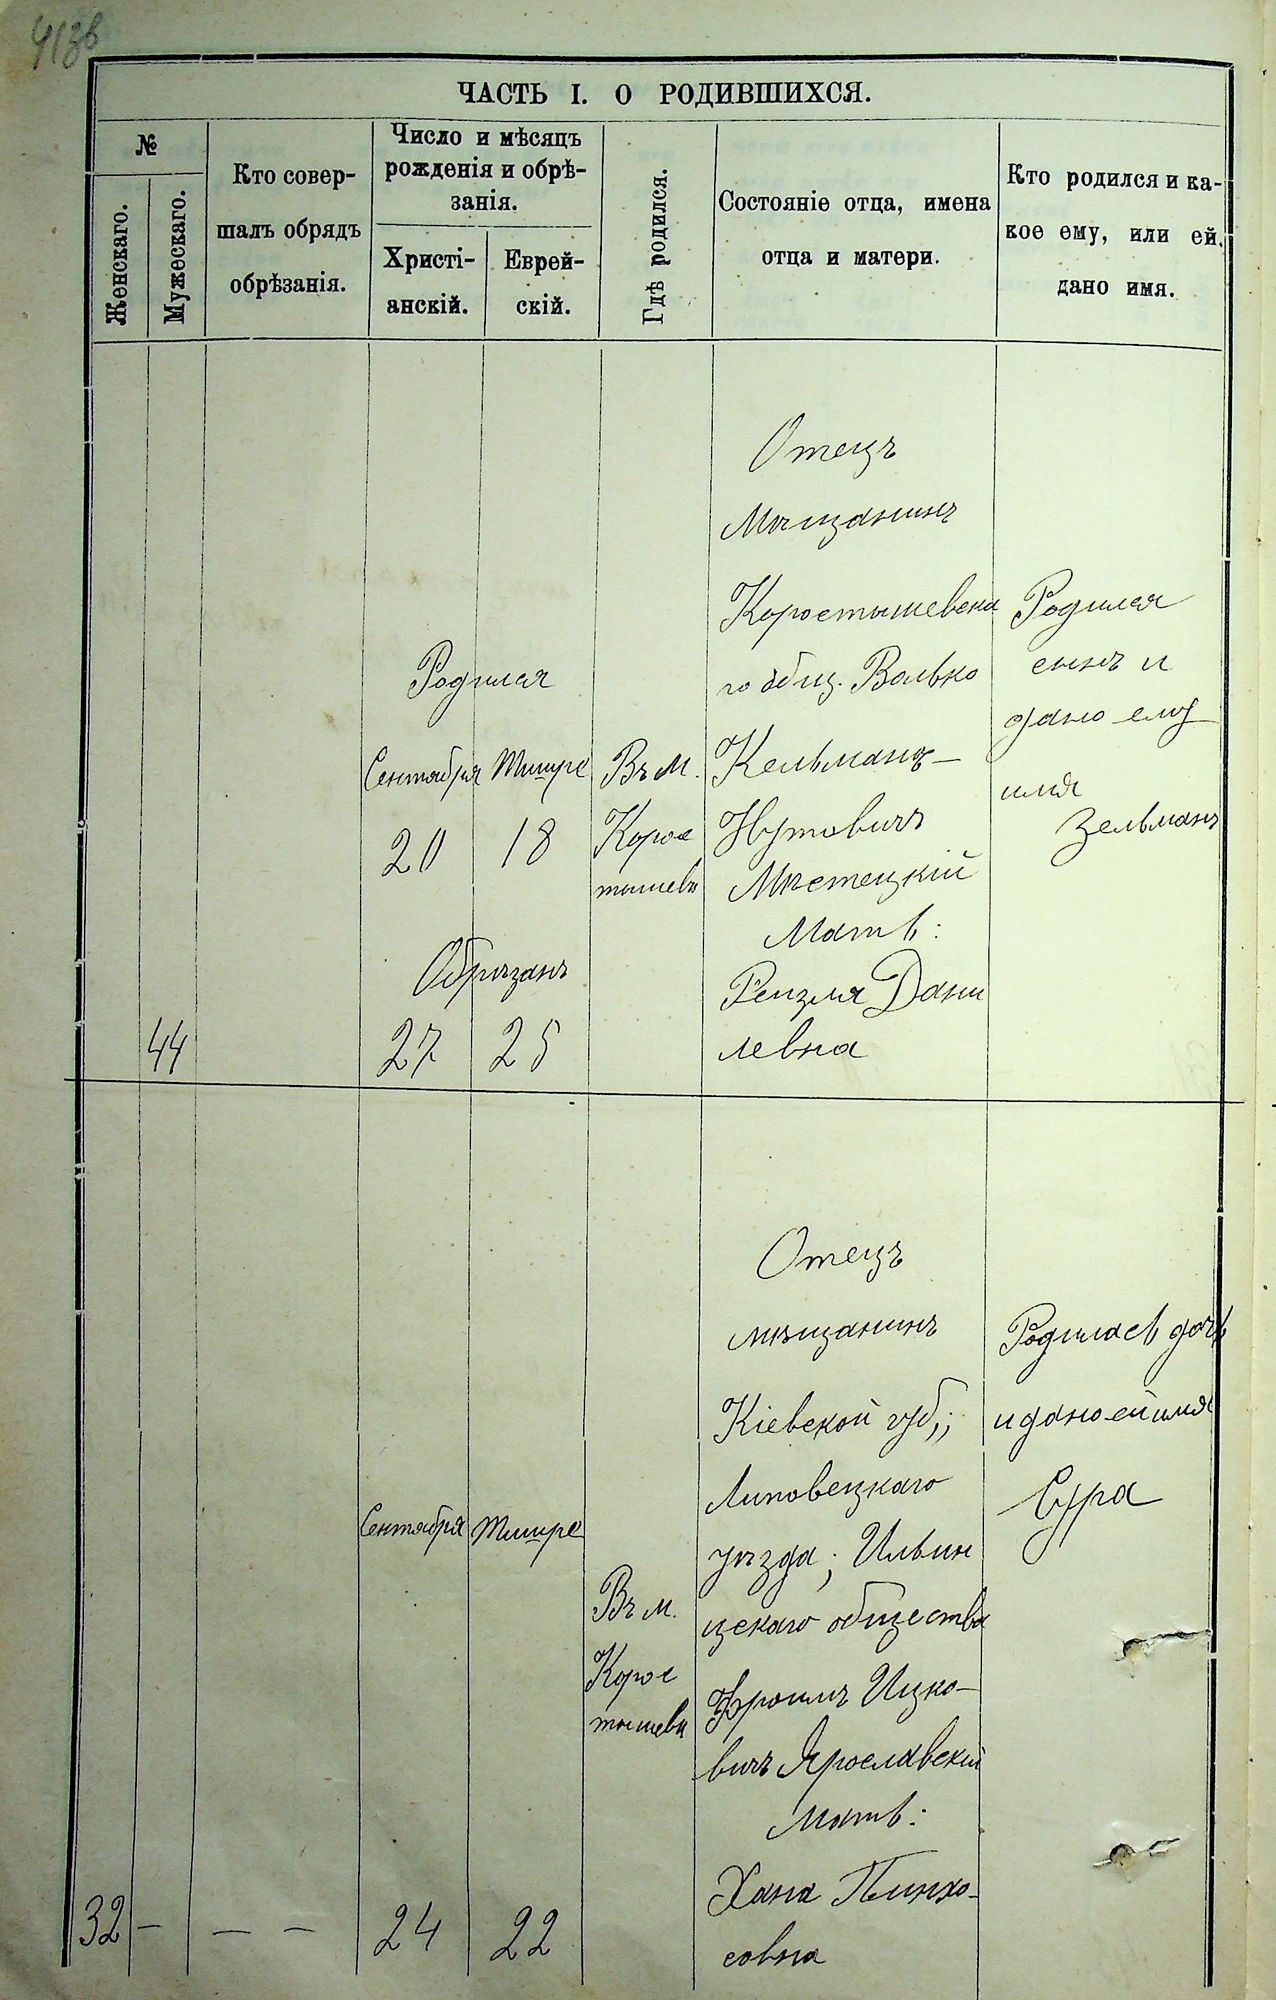 413об
ЧАСТЬ I. О РОДИВШИХСЯ.
№
Женскаго.
Мужескаго.
Кто совер-
шалъ обрядъ
обрѣзанія.
Число и мѣсяцъ
рожденія и обрѣ-
занія.
Христі-
анскій.
Еврей-
скій.
Гдѣ родился.
Состояніе отца, имена
отца и матери.
Кто родился и ка-
кое ему, или ей,
дано имя.
44
Родился
Сентября Тишре
20 18
Обрѣзанъ
27 25
Въ м.
Корос
тышевѣ
Отецъ
Мѣщанинъ
Коростышевска
го общ. Волько
Кельманъ-
Нутовичъ
Мястецкій
Мать:
Рейзля Дани
левна
Родился
сынъ и
дано ему
имя
Зельманъ
32 — — —
Сентября Тишре
24 22
Въ м.
Корос
тышевѣ
Отецъ
мѣщанинъ
Кіевской губ.;
Липовецкаго
уѣзда; Ильин
цскаго общества
Фроимъ Ицко-
вичъ Ярославскій
Мать:
Хана Пинхо-
совна
Родилась дочь
и дано ей имя
Сура